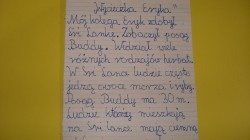 "Wycieczka Eryka"
Mój kolega Eryk zdobył
Sri Lankę. Zobaczył posąg
Buddy. Widział wiele
różnych rodzajów herbat.
W Sri Lanca ludzie często
jedzą owoce morza i ryby.
Posąg Buddy ma 30 m.
Ludzie którzy mieszkają
na Sri Lanca mają ciemną